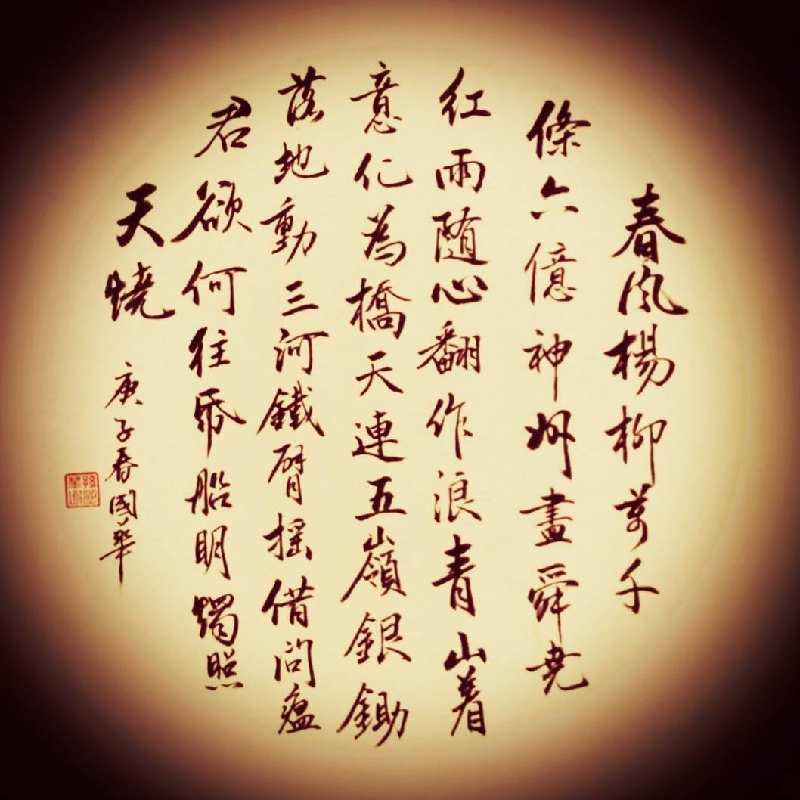 春風楊柳萬千
條六億神州盡舜堯
紅雨隨心翻作浪青山着
意化為橋天連五嶺銀鋤
落地動三河鐵臂搖借問瘟
君欲何往帋船明燭照
天燒
庚子春國華